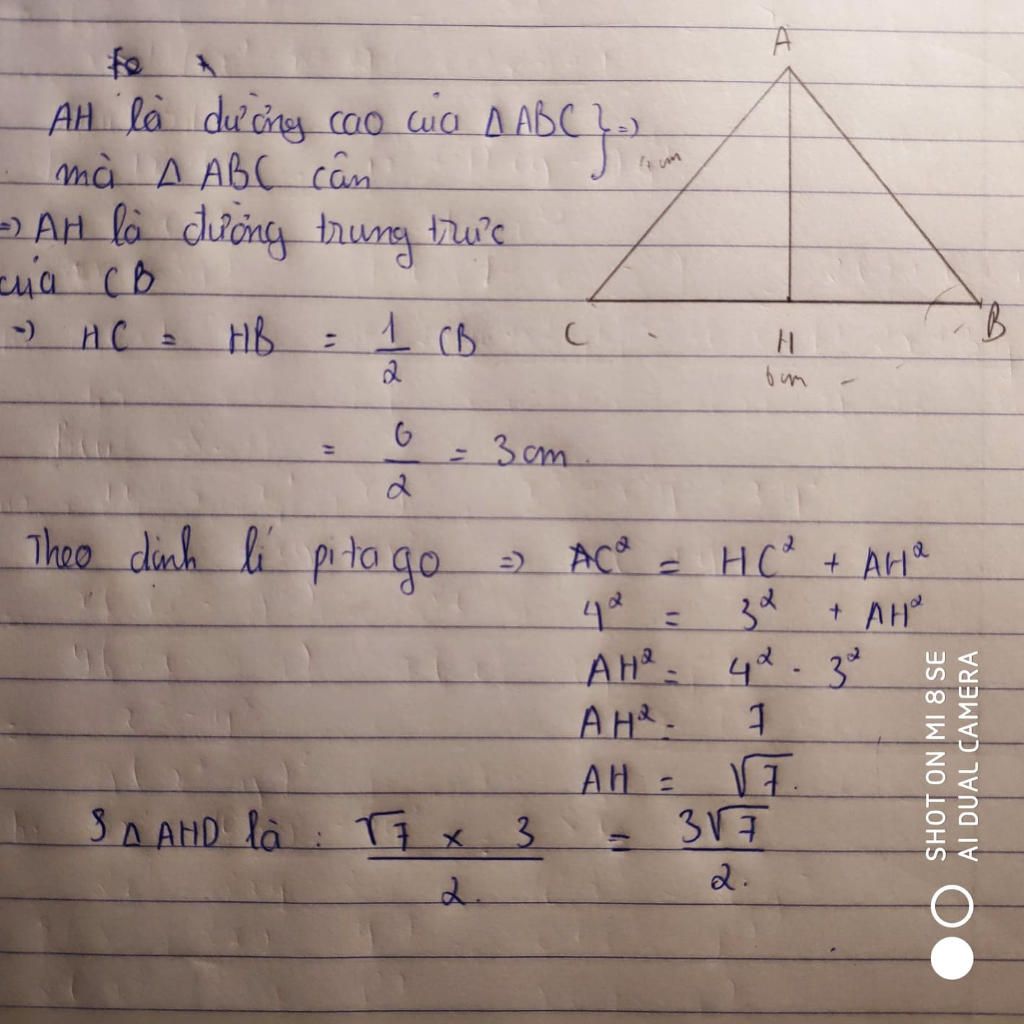 A
AH là đường cao của Δ ABC } =>
mà Δ ABC cân
=> AH là đường trung trực
của CB
4cm
C H B
6cm
=> HC = HB = 1/2 CB
= 6/2 = 3cm.
Theo định lí pitago => AC² = HC² + AH²
4² = 3² + AH²
AH² = 4² - 3²
AH² = 7
AH = √7.
S Δ AHD là : √7 x 3 / 2. = 3√7 / 2.
SHOT ON MI 8 SE
AI DUAL CAMERA